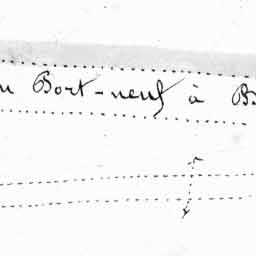 u Port-neuf à B